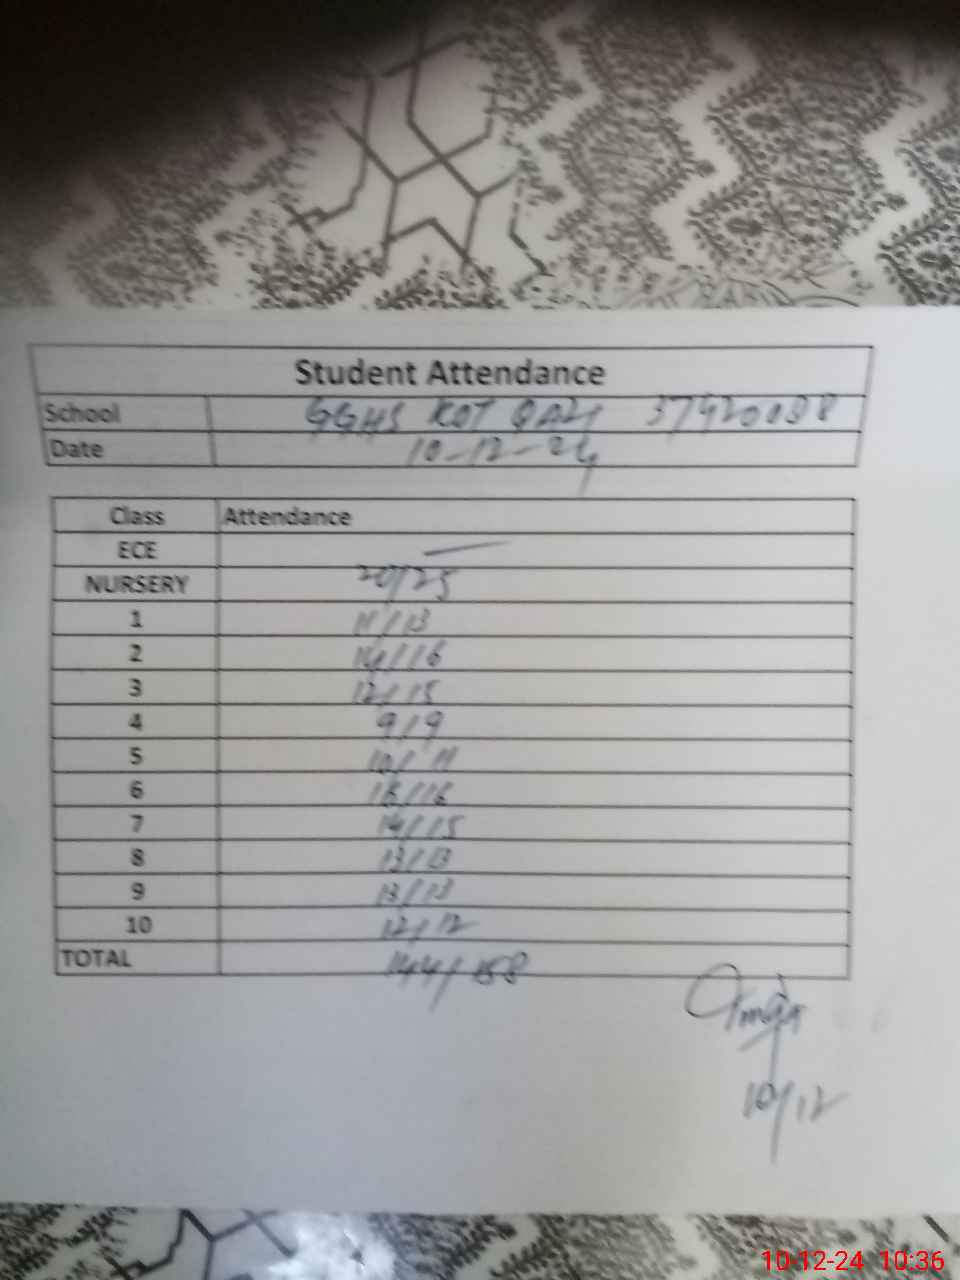 Student Attendance
School GGHS KOT QAZI
Date 10-12-24
Class Attendance
ECE —
NURSERY 20/25
1 11/13
2 14/16
3 12/15
4 9/9
5 10/11
6 16/16
7 14/15
8 13/13
9 13/13
10 12/12
TOTAL 144/158
10/12
10-12-24 10:36